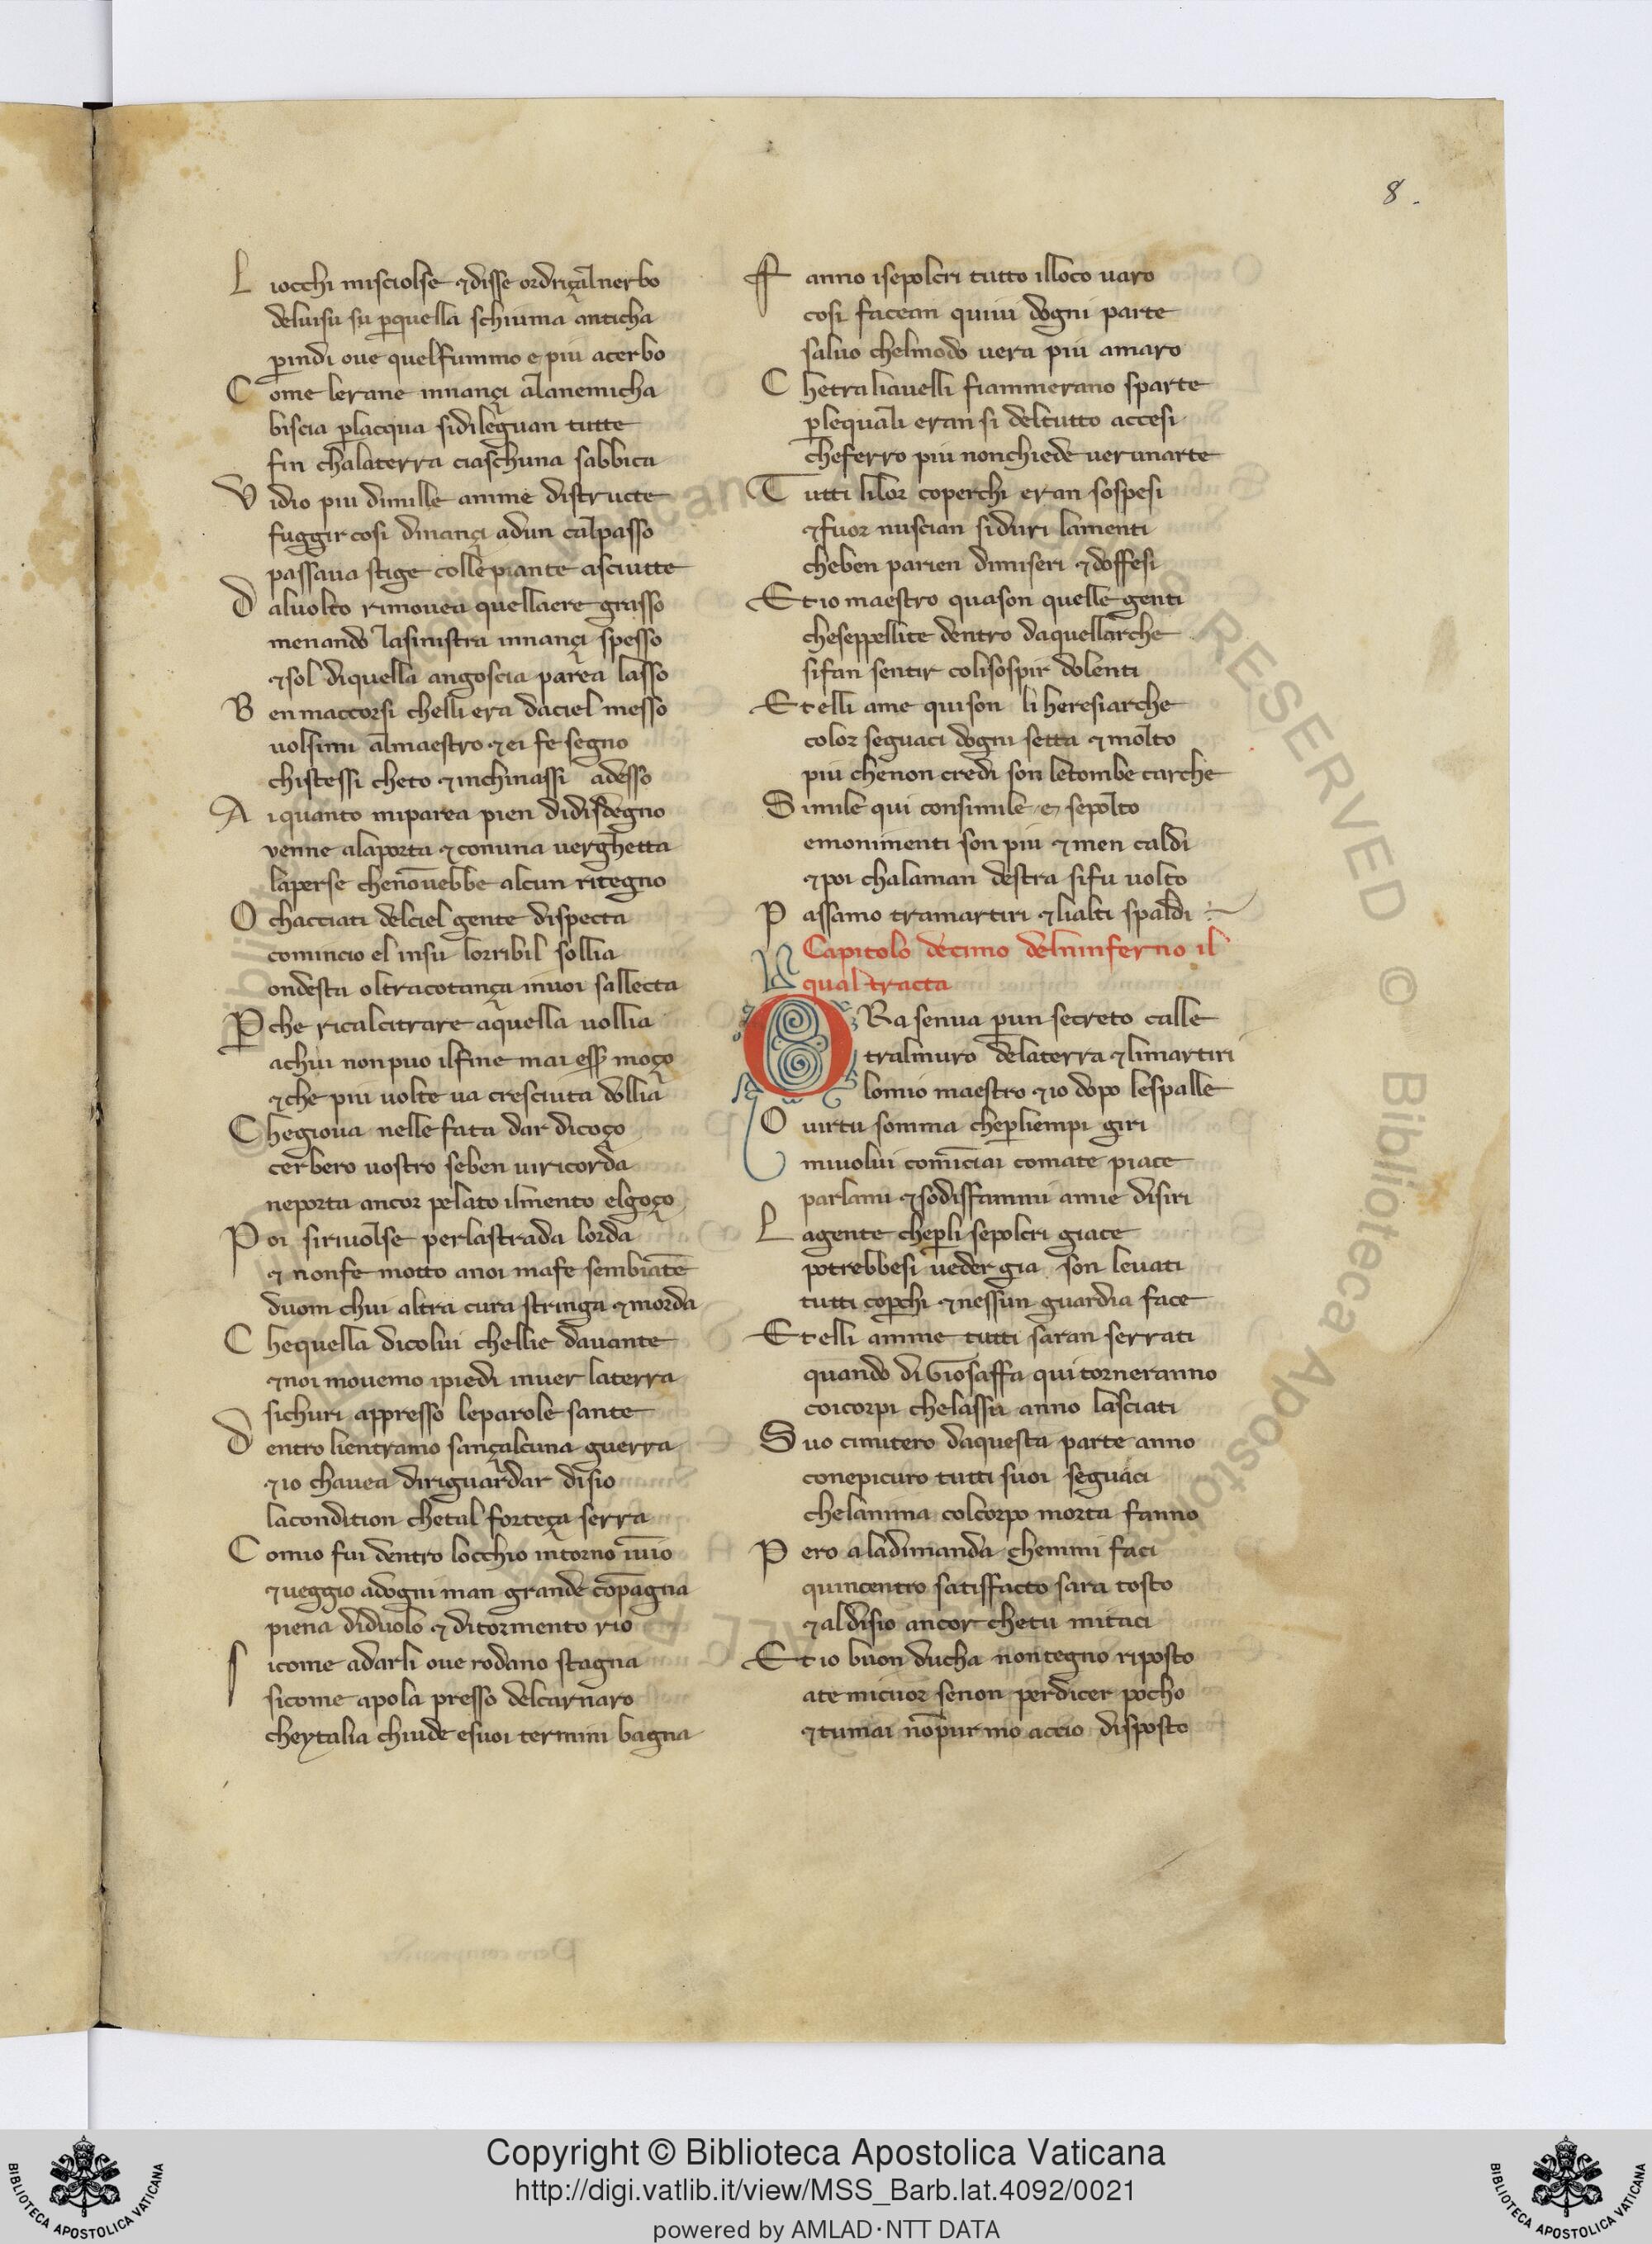 8.
L iocchi misciolse ⁊disse ordriçal nerbo
deluisu su ꝑquella schiuma anticha
ꝑindi oue quelfummo e piu acerbo
C ome lerane innançi alanemicha
biscia ꝑlacqua sidileguan tutte
fin chalaterra ciaschuna sabbica
V idio piu dimille anime distructe
fuggir cosi dinançi adun calpasso
passaua stige colle piante asciutte
D aluolto rimouea quellaere grasso
menando lasinistra innançi spesso
⁊sol diquella angoscia parea lasso
B en maccorsi chelli era daciel messo
uolsimi almaestro ⁊ ei fe segno
chistessi cheto ⁊ inchinassi adesso
A i quanto miparea pien didisdegno
venne alaporta ⁊ conuna uerghetta
laperse chenōuebbe alcun ritegno
O chacciati delciel gente dispecta
comincio el insu lorribil sollia
ondesta oltracotança inuoi sallecta
Ꝑ che ricalcitrare aquella uollia
achui nonpuo ilfine mai esſ moço
⁊che piu uolte ua cresciuta dollia
C hegioua nelle fata dar dicoço
cerbero uostro seben uiricorda
neporta ancor pelato ilmento elgoço
P oi siriuolse perlastrada lorda
⁊ nonfe motto anoi mafe sembiāte
duom chui altra cura stringa ⁊ morda
C hequella dicolui chellie dauante
⁊noi mouemo ipiedi inuer laterra
sichuri appresso leparole sante
D entro lientramo sançalcuna guerra
⁊ io chauea diriguardar disio
lacondition chetal forteça serra
C omio fui dentro locchio intorno īuio
⁊ueggio adogni man grande cōpagna
piena diduolo ⁊ ditormento rio
S icome adarli oue rodano stagna
sicome apola presso delcarnaro
cheytalia chiude esuoi termini bagna
F anno isepolcri tutto illoco uaro
cosi facean quiui dogni parte
saluo chelmodo uera piu amaro
C hetraliauelli fiammerano sparte
ꝑlequali eran si deltutto accesi
cheferro piu nonchiede uerunarte
T utti lilor coperchi eran sospesi
⁊fuor nuscian siduri lamenti
cheben parien dimiseri ⁊ doffesi
E t io maestro quason quelle genti
cheseppellite dentro daquellarche
sifan sentir colisospir dolenti
E t elli ame quison li heresiarche
color seguaci dogni setta ⁊ molto
piu chenon credi son letombe carche
S imile qui consimile e sepolto
emonimenti son piu ⁊ men caldi
⁊poi chalaman destra sifu uolto
P assamo tramartiri ⁊ lialti spaldi
Capitolo decimo delninferno il
qual tracta
O Ra senua ꝑun secreto calle
tralmuro delaterra ⁊ limartiri
lomio maestro ⁊ io dopo lespalle
O uirtu somma cheꝑliempi giri
miuolui comīciai comate piace
parlami ⁊ sodisfammi amie disiri
L agente cheꝑli sepolcri giace
potrebbesi ueder gia son leuati
tutti coꝑchi ⁊ nessun guardia face
E t elli amme tutti saran serrati
quando di Giosaffa qui torneranno
coicorpi chelassu anno lasciati
S uo cimitero daquesta parte anno
conepicuro tutti suoi seguaci
chelanima colcorpo morta fanno
P ero aladimanda chemmi faci
quincentro satisfacto sara tosto
⁊ aldisio ancor chetu mitaci
E t io buon ducha nontegno riposto
ate micuor senon perdicer pocho
⁊tumai nōpur mo accio disposto
Copyright © Biblioteca Apostolica Vaticana
http://digi.vatlib.it/view/MSS_Barb.lat.4092/0021
powered by AMLAD·NTT DATA
BIBLIOTECA APOSTOLICA VATICANA
BIBLIOTECA APOSTOLICA VATICANA